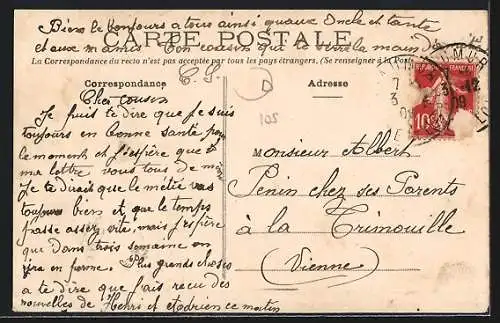 Bien le bonjours a tous ainsi quaux Oncle et tante
et aux mamis Ton cousin qui te serre la main
CARTE POSTALE
La Correspondance du recto n'est pas acceptée par tous les pays étrangers. (Se renseigner à la Poste)
C. P.
Correspondance
Adresse
Cher cousin
Je fuit te dire que je suis
toujours en bonne santé pour
le moment et j'espère que
ma lettre vous tous de m
Je te dirait que le métié vas
toujours bien et que le temps
passe assez vite, mais j'espère
que dans trois semaine on
sera en perme. Plus grands choses
a te dire que j'ais recu des
nouvelles de Henri et Adrien ce matin
105
Monsieur Albert
Penin chez ses Parents
à la Trimouille
(Vienne)
SAUMUR
3 -12
09
10